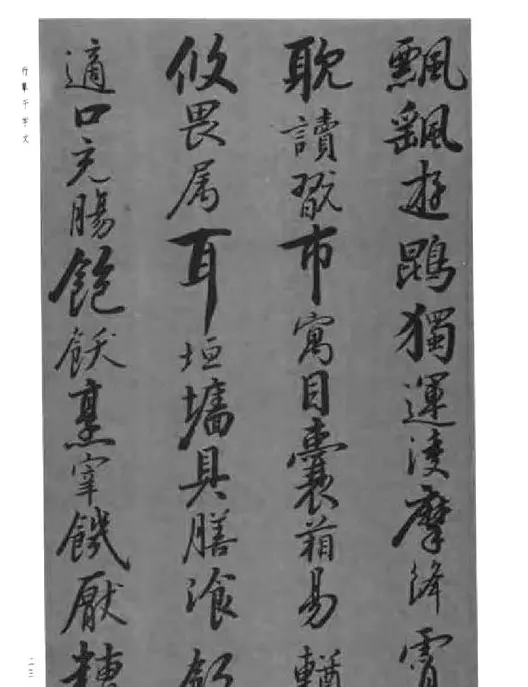 飄颻遊鵾獨運凌摩絳霄
耽讀翫市寓目囊箱易輶
攸畏属耳垣墻具膳湌飯
適口充腸飽飫烹宰饑厭糟
行草千字文
二三